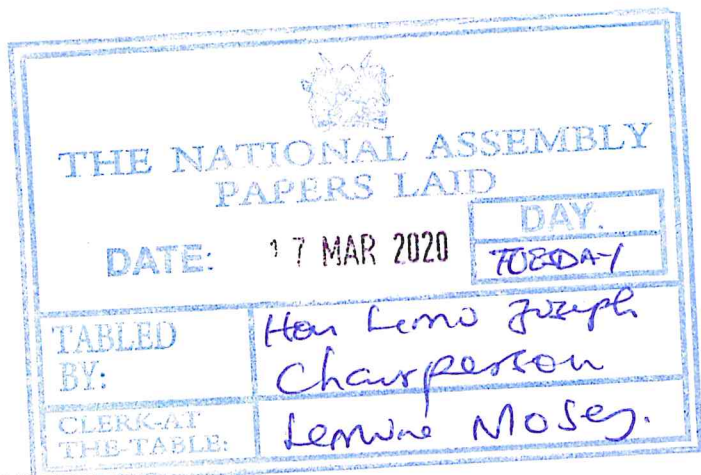 THE NATIONAL ASSEMBLY
PAPERS LAID
DATE: 17 MAR 2020
DAY.
TUESDAY
TABLED BY:
Hon Joseph
Chairperson
CLERK-AT THE-TABLE:
Moses.